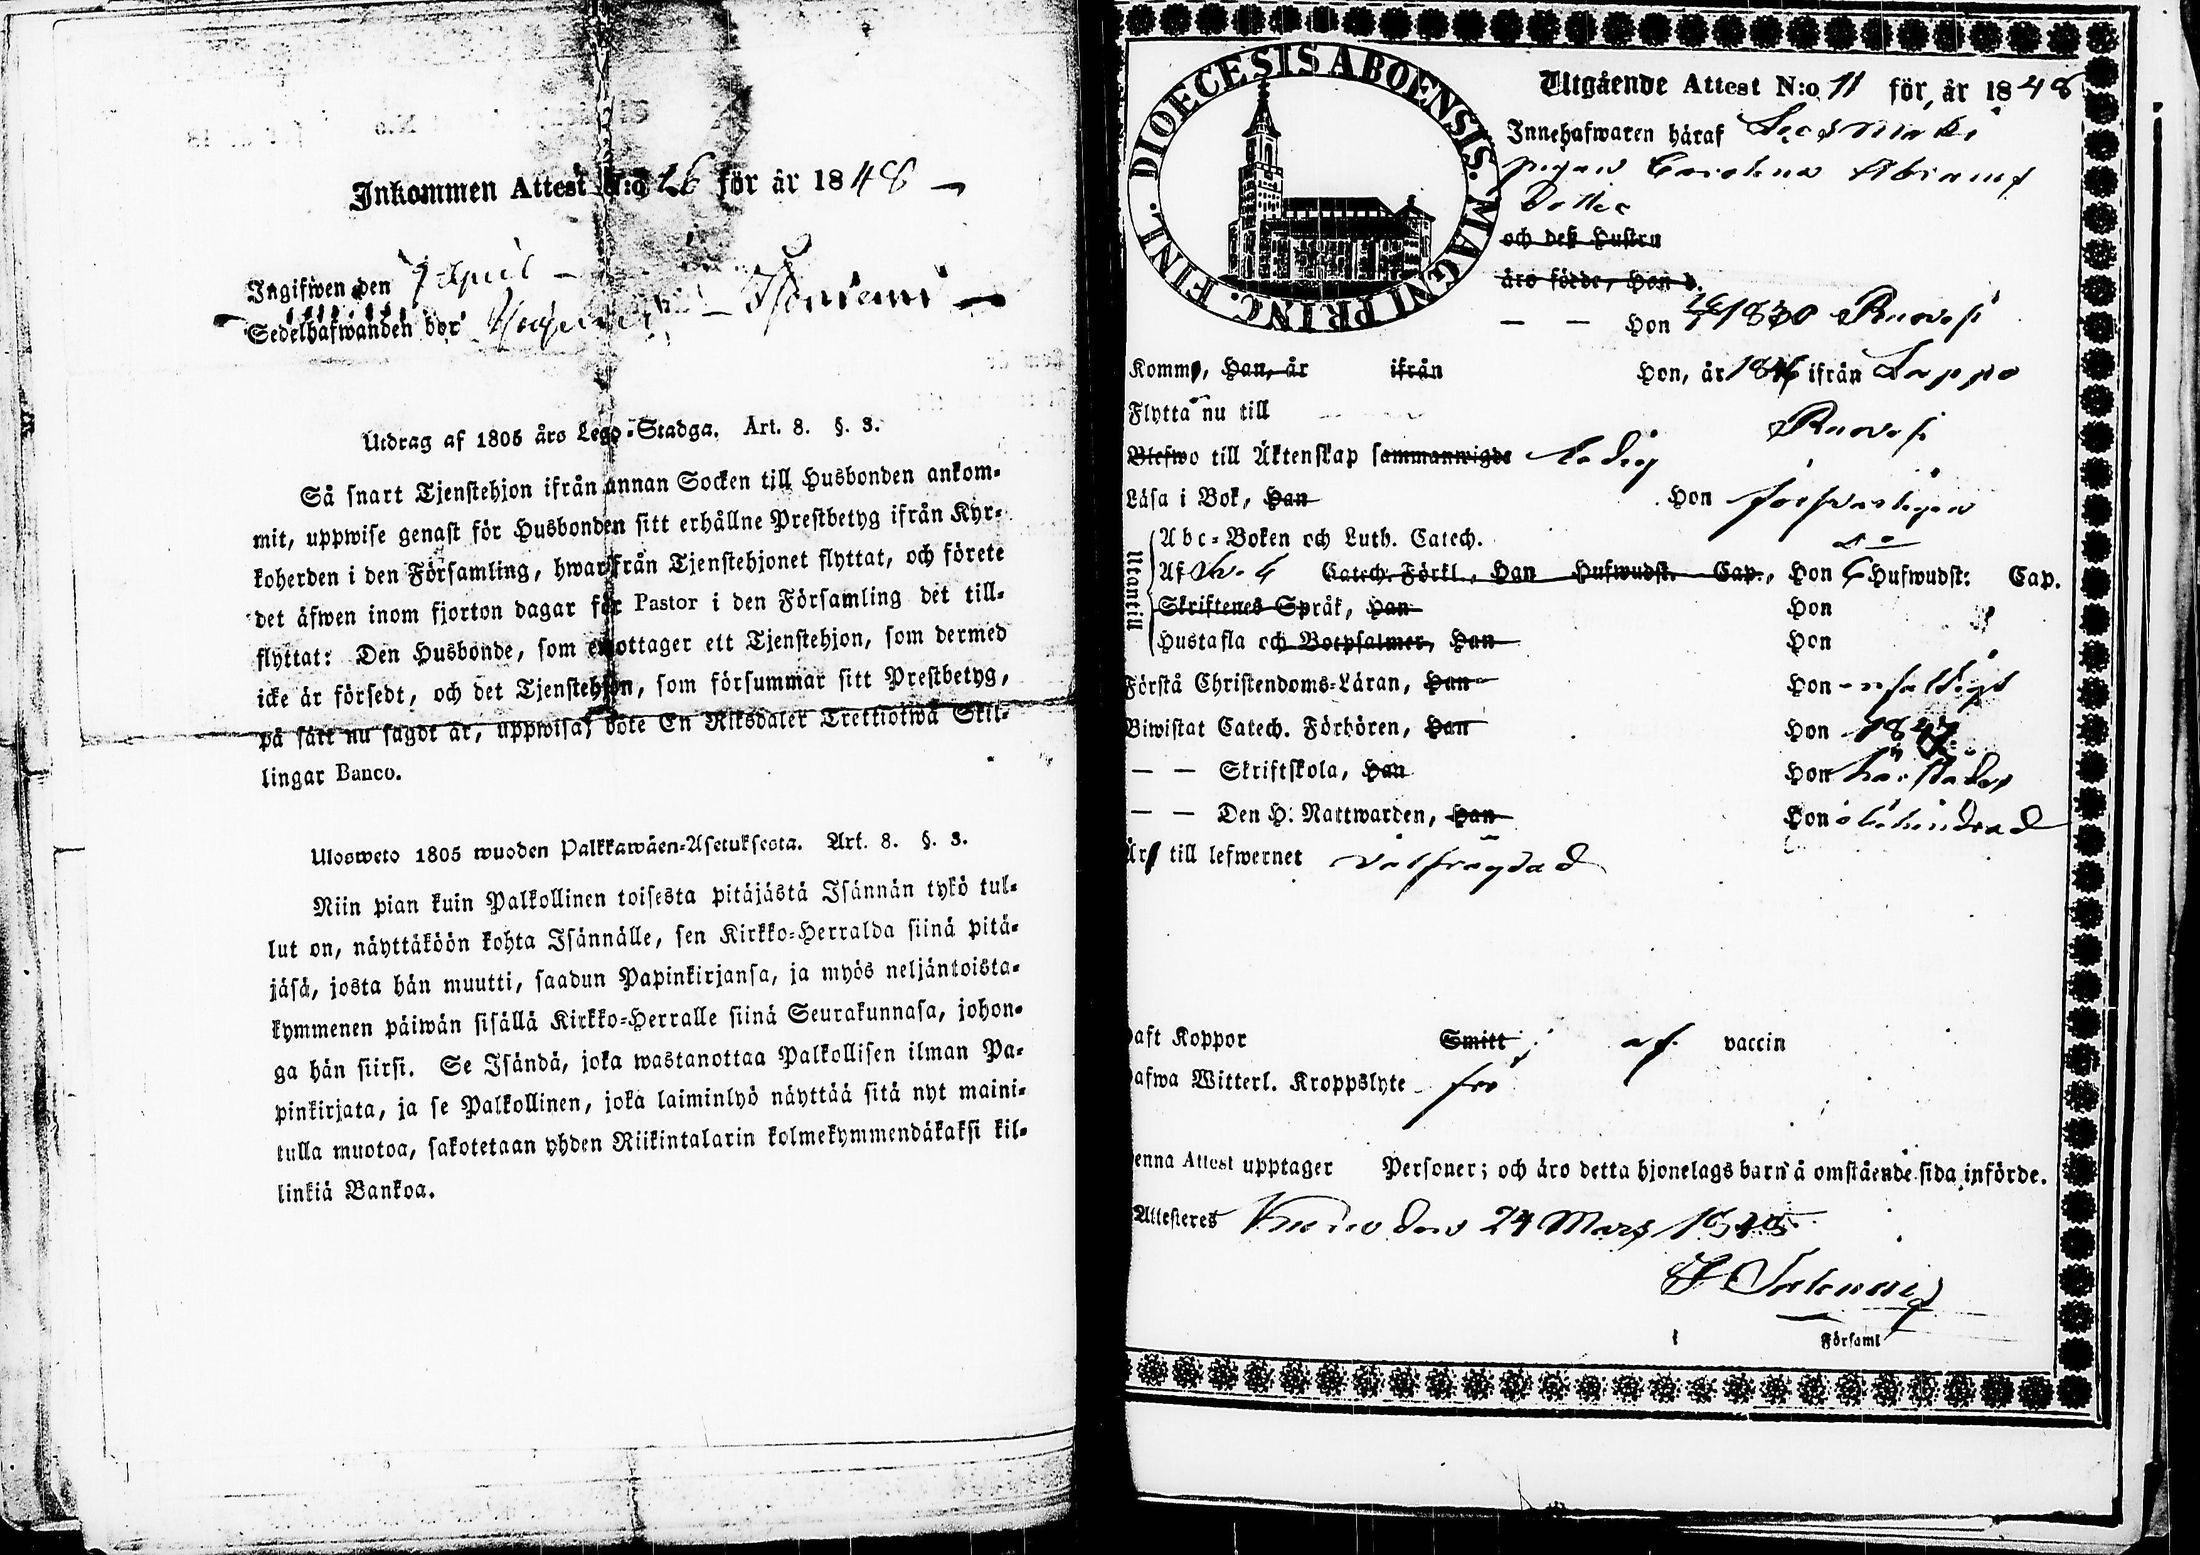 Inkommen Attest N:o 26 för år 1848
Ingifwen den April
Sedelhafwanden bor
Utdrag af 1805 års Lego-Stadga. Art. 8. §. 3.
Så snart Tjenstehjon ifrån annan Socken till Husbonden ankom-
mit, uppwise genast för Husbonden sitt erhållne Prestbetyg ifrån Kyr-
koherden i den Församling, hwarifrån Tjenstehjonet flyttat, och förete
det äfwen inom fjorton dagar för Pastor i den Församling det till-
flyttat: Den Husbonde, som emottager ett Tjenstehjon, som dermed
icke är försedt, och det Tjenstehjon, som försummar sitt Prestbetyg,
på sätt nu sagdt är, uppwisa, böte En Riksdaler Trettiotwå Skil-
lingar Banco.
Ulosweto 1805 wuoden Palkkawäen-Asetuksesta. Art. 8. §. 3.
Niin pian kuin Palkollinen toisesta pitäjästä Isännän tykö tul-
lut on, näyttäköön kohta Isännälle, sen Kirkko-Herralda siinä pitä-
jäsä, josta hän muutti, saadun Papinkirjansa, ja myös neljäntoista-
kymmenen päiwän sisällä Kirkko-Herralle siinä Seurakunnasa, johon-
ga hän siirsi. Se Isändä, joka wastanottaa Palkollisen ilman Pa-
pinkirjata, ja se Palkollinen, joka laiminlyö näyttää sitä nyt maini-
tulla muotoa, sakotetaan yhden Riikintalarin kolmekymmendäkaksi kil-
linkiä Bankoa.
DIOECESIS ABOENSIS. MAGNI PRINC. FINL.
Utgående Attest N:o 11 för år 1848
Innehafwaren häraf
pigan Carolina Abrams
Dotter
och deß Hustru
äro födde, Han d.
— — Hon 1830 Ruovesi
Komme, Han, år ifrån Hon, år 1846 ifrån Lappo
Flytta nu till Ruovesi
Blefwo till Äktenskap sammanwigde Ledig
Läsa i Bok, Han Hon försvarligen
Utantill
Abc-Boken och Luth. Catech.
Af Sv. Catech. Förkl., Han Hufwudst. Cap., Hon Hufwudst: Cap.
Skriftenes Språk, Han Hon
Hustafla och Botpsalmer, Han Hon
Förstå Christendoms-Läran, Han Hon enfaldigt
Biwistat Catech. Förhören, Han Hon 1847
— — Skriftskola, Han Hon härstädes
— — Den H: Nattwarden, Han Hon obehindrad
Äro till lefwernet välfrägdad
Haft Koppor Smitt af vaccin
Hafwa Witterl. Kroppslyte fri
Denna Attest upptager Personer; och äro detta hjonelags barn å omstående sida införde.
Attesteres den 24 Mars 1848
Församl